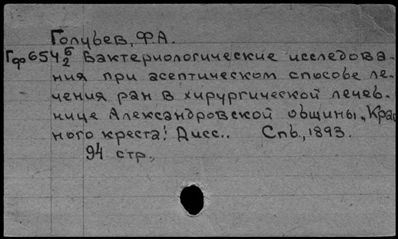 Голубев, Ф.А.
Гф654 6/2 Бактериологические исследова-
ния при асептическом способе ле-
чения ран в хирургической лечеб-
нице Александровской общины „Крас
ного креста! Дисс.. Спб., 1893.
94 стр.,